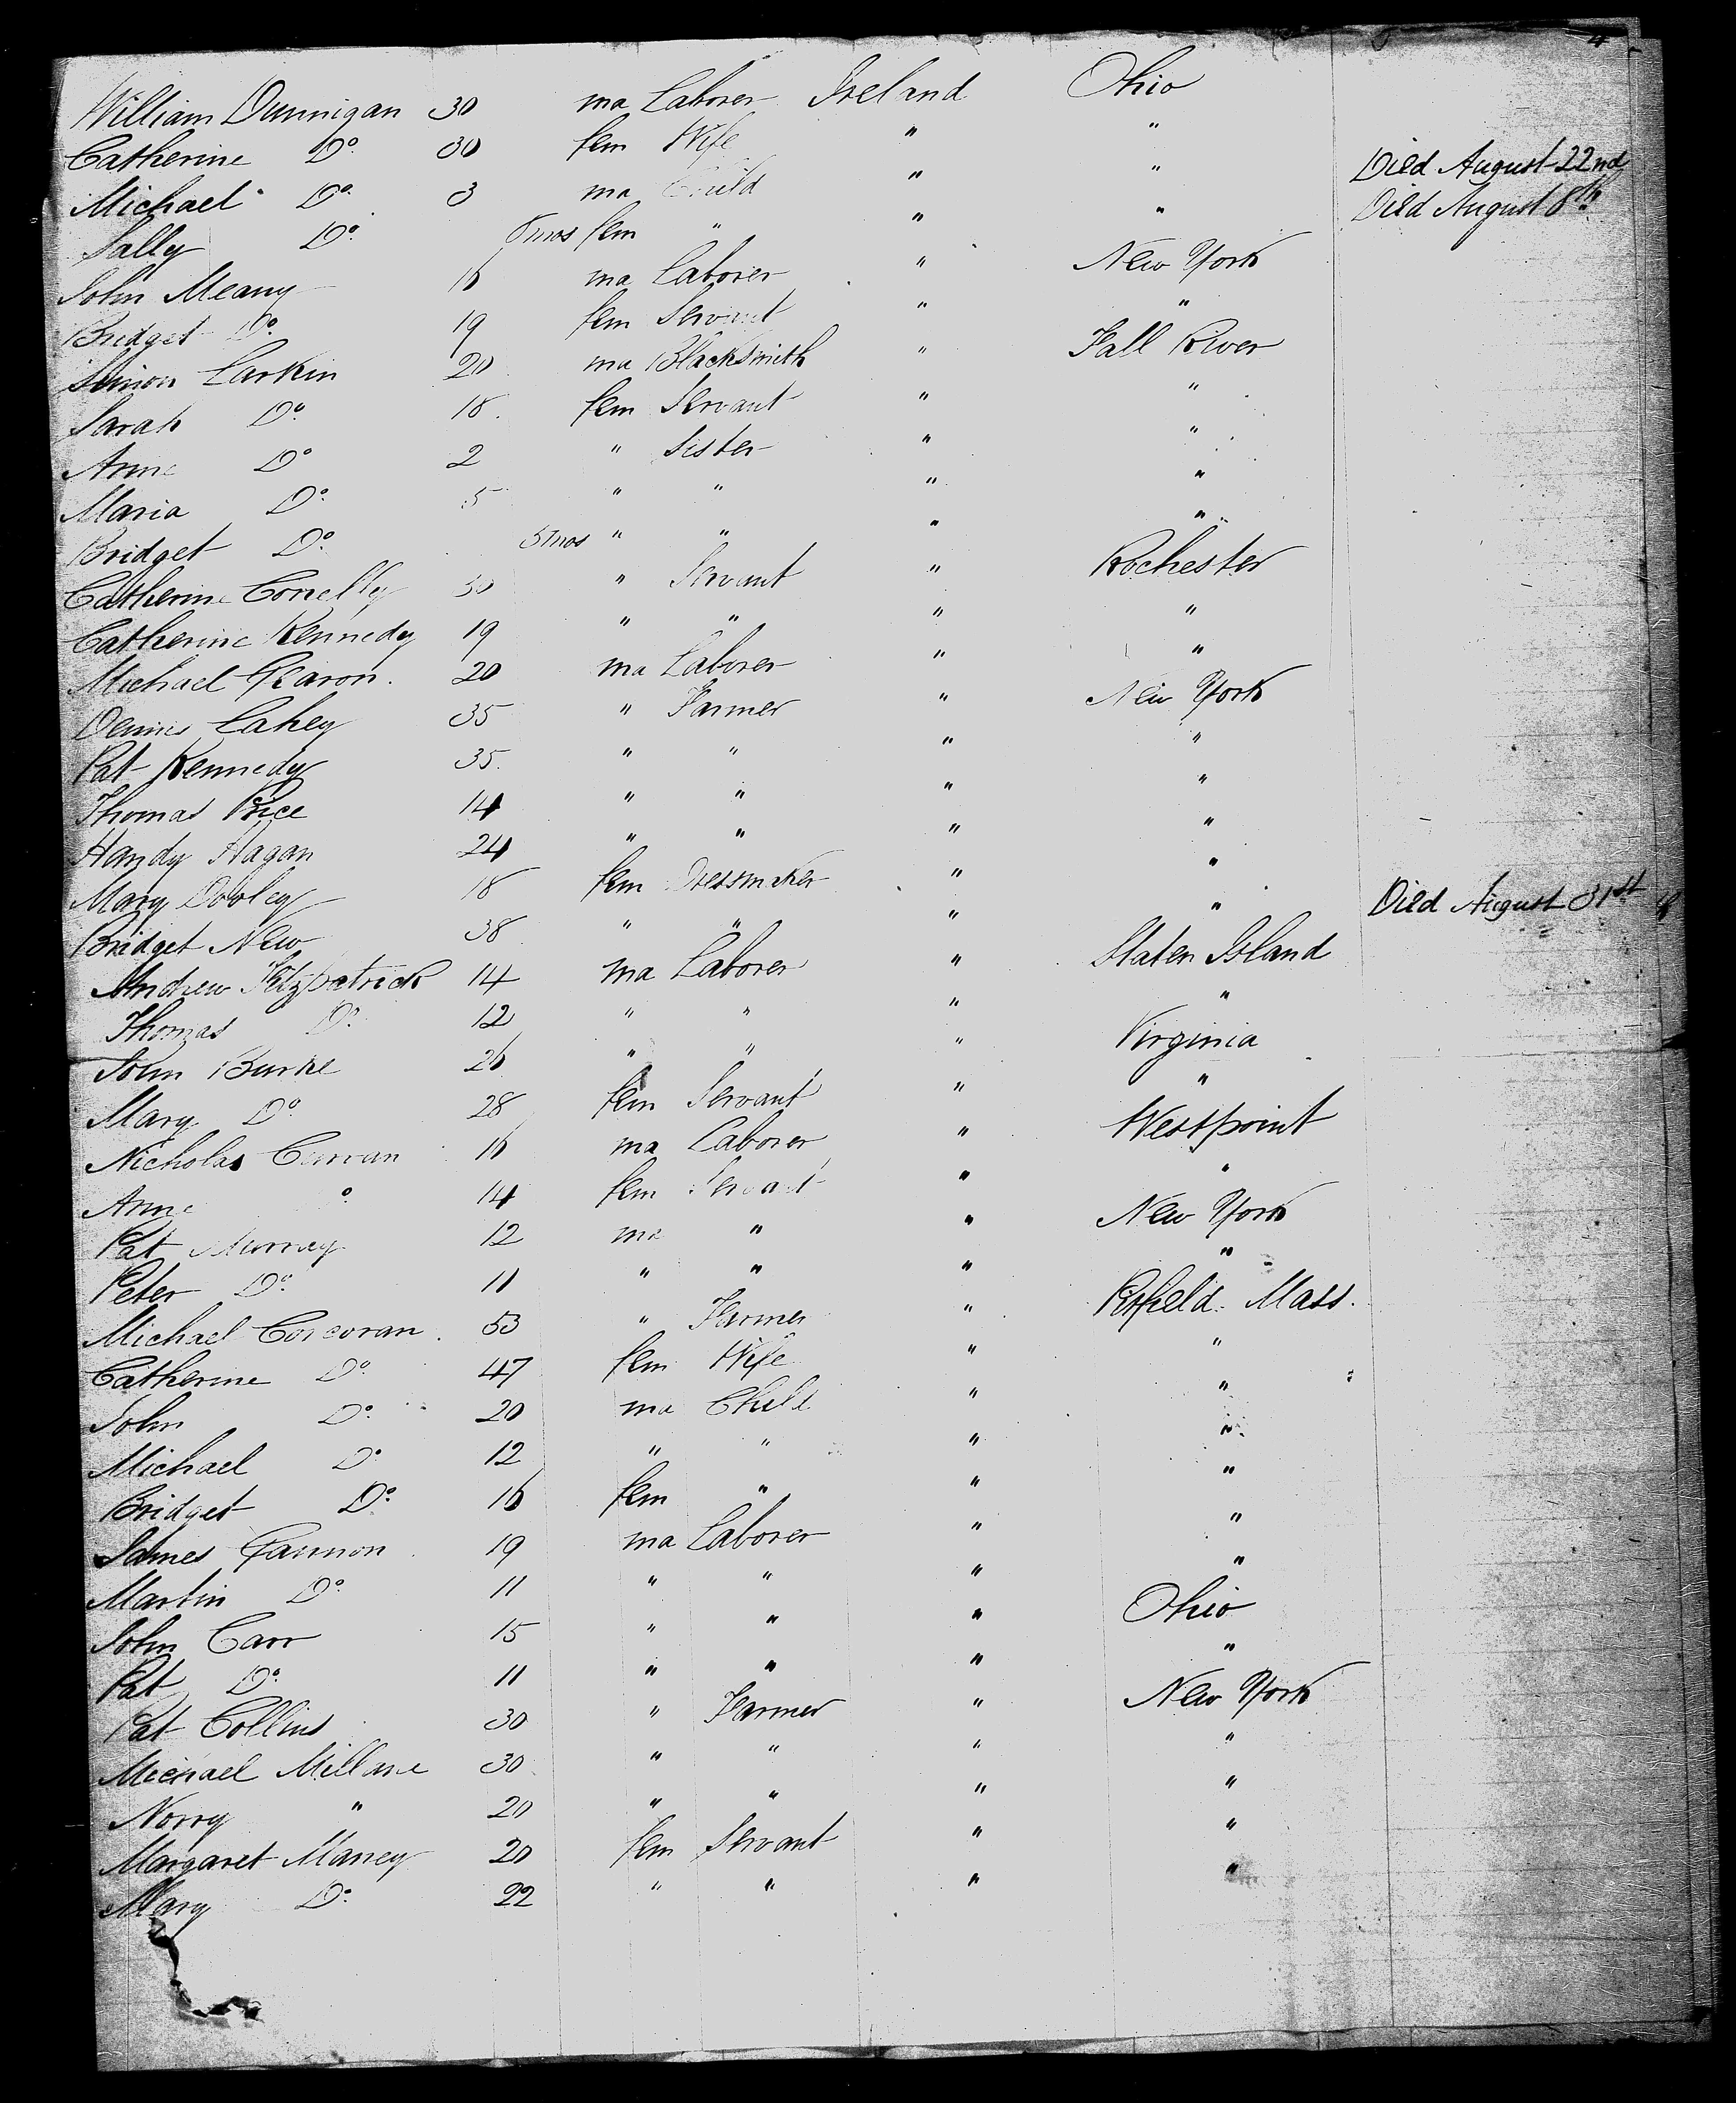 William Dunnigan 30 ma Laborer Ireland Ohio
Catherine Do. 30 fem Wife " "
Michael Do. 3 ma Child " " Died August 22nd
Sally Do. 8 mos fem " " " Died August 8th
John Meany 16 ma Laborer " New York
Bridget Do. 19 fem Servant " "
Simon Larkin 20 ma Blacksmith " Fall River
Sarah Do. 18 fem Servant " "
Anne Do 2 " Sister " "
Maria Do. 5 " " " "
Bridget Do. 5 mos " " " "
Catherine Conelly 30 " Servant " Rochester
Catherine Kennedy 19 " " " "
Michael 20 ma Laborer " "
Dennis Lahey 35 " Farmer " New York
Pat Kennedy 35 " " " "
Thomas Price 14 " " " "
Handy Hagan 24 " " " "
Mary Dooley 18 fem Dressmaker " "
Bridget New 38 " " " " Died August 31st
Andrew Fitzpatrick 14 ma Laborer " Staten Island
Thomas Do. 12 " " " "
John Burke 26 " " " Virginia
Mary Do. 28 fem Servant " "
Nicholas Curvan 16 ma Laborer " Westpoint
Anne Do 14 fem Servant " "
Pat Murray 12 ma " " New York
Peter Do. 11 " " " "
Michael Corcoran 53 " Farmer " Pitfield. Mass.
Catherine Do 47 fem Wife " "
John Do. 20 ma Child " "
Michael Do 12 " " " "
Bridget Do. 16 fem " " "
James Gannon 19 ma Laborer " "
Martin Do. 11 " " " "
John Carr 15 " " " Ohio
Pat Do. 11 " " " "
Pat Collins 30 " Farmer " New York
Michael Millane 30 " " " "
Norry " 20 " " " "
Margaret Maney 20 fem Servant " "
Mary Do. 22 " " " "